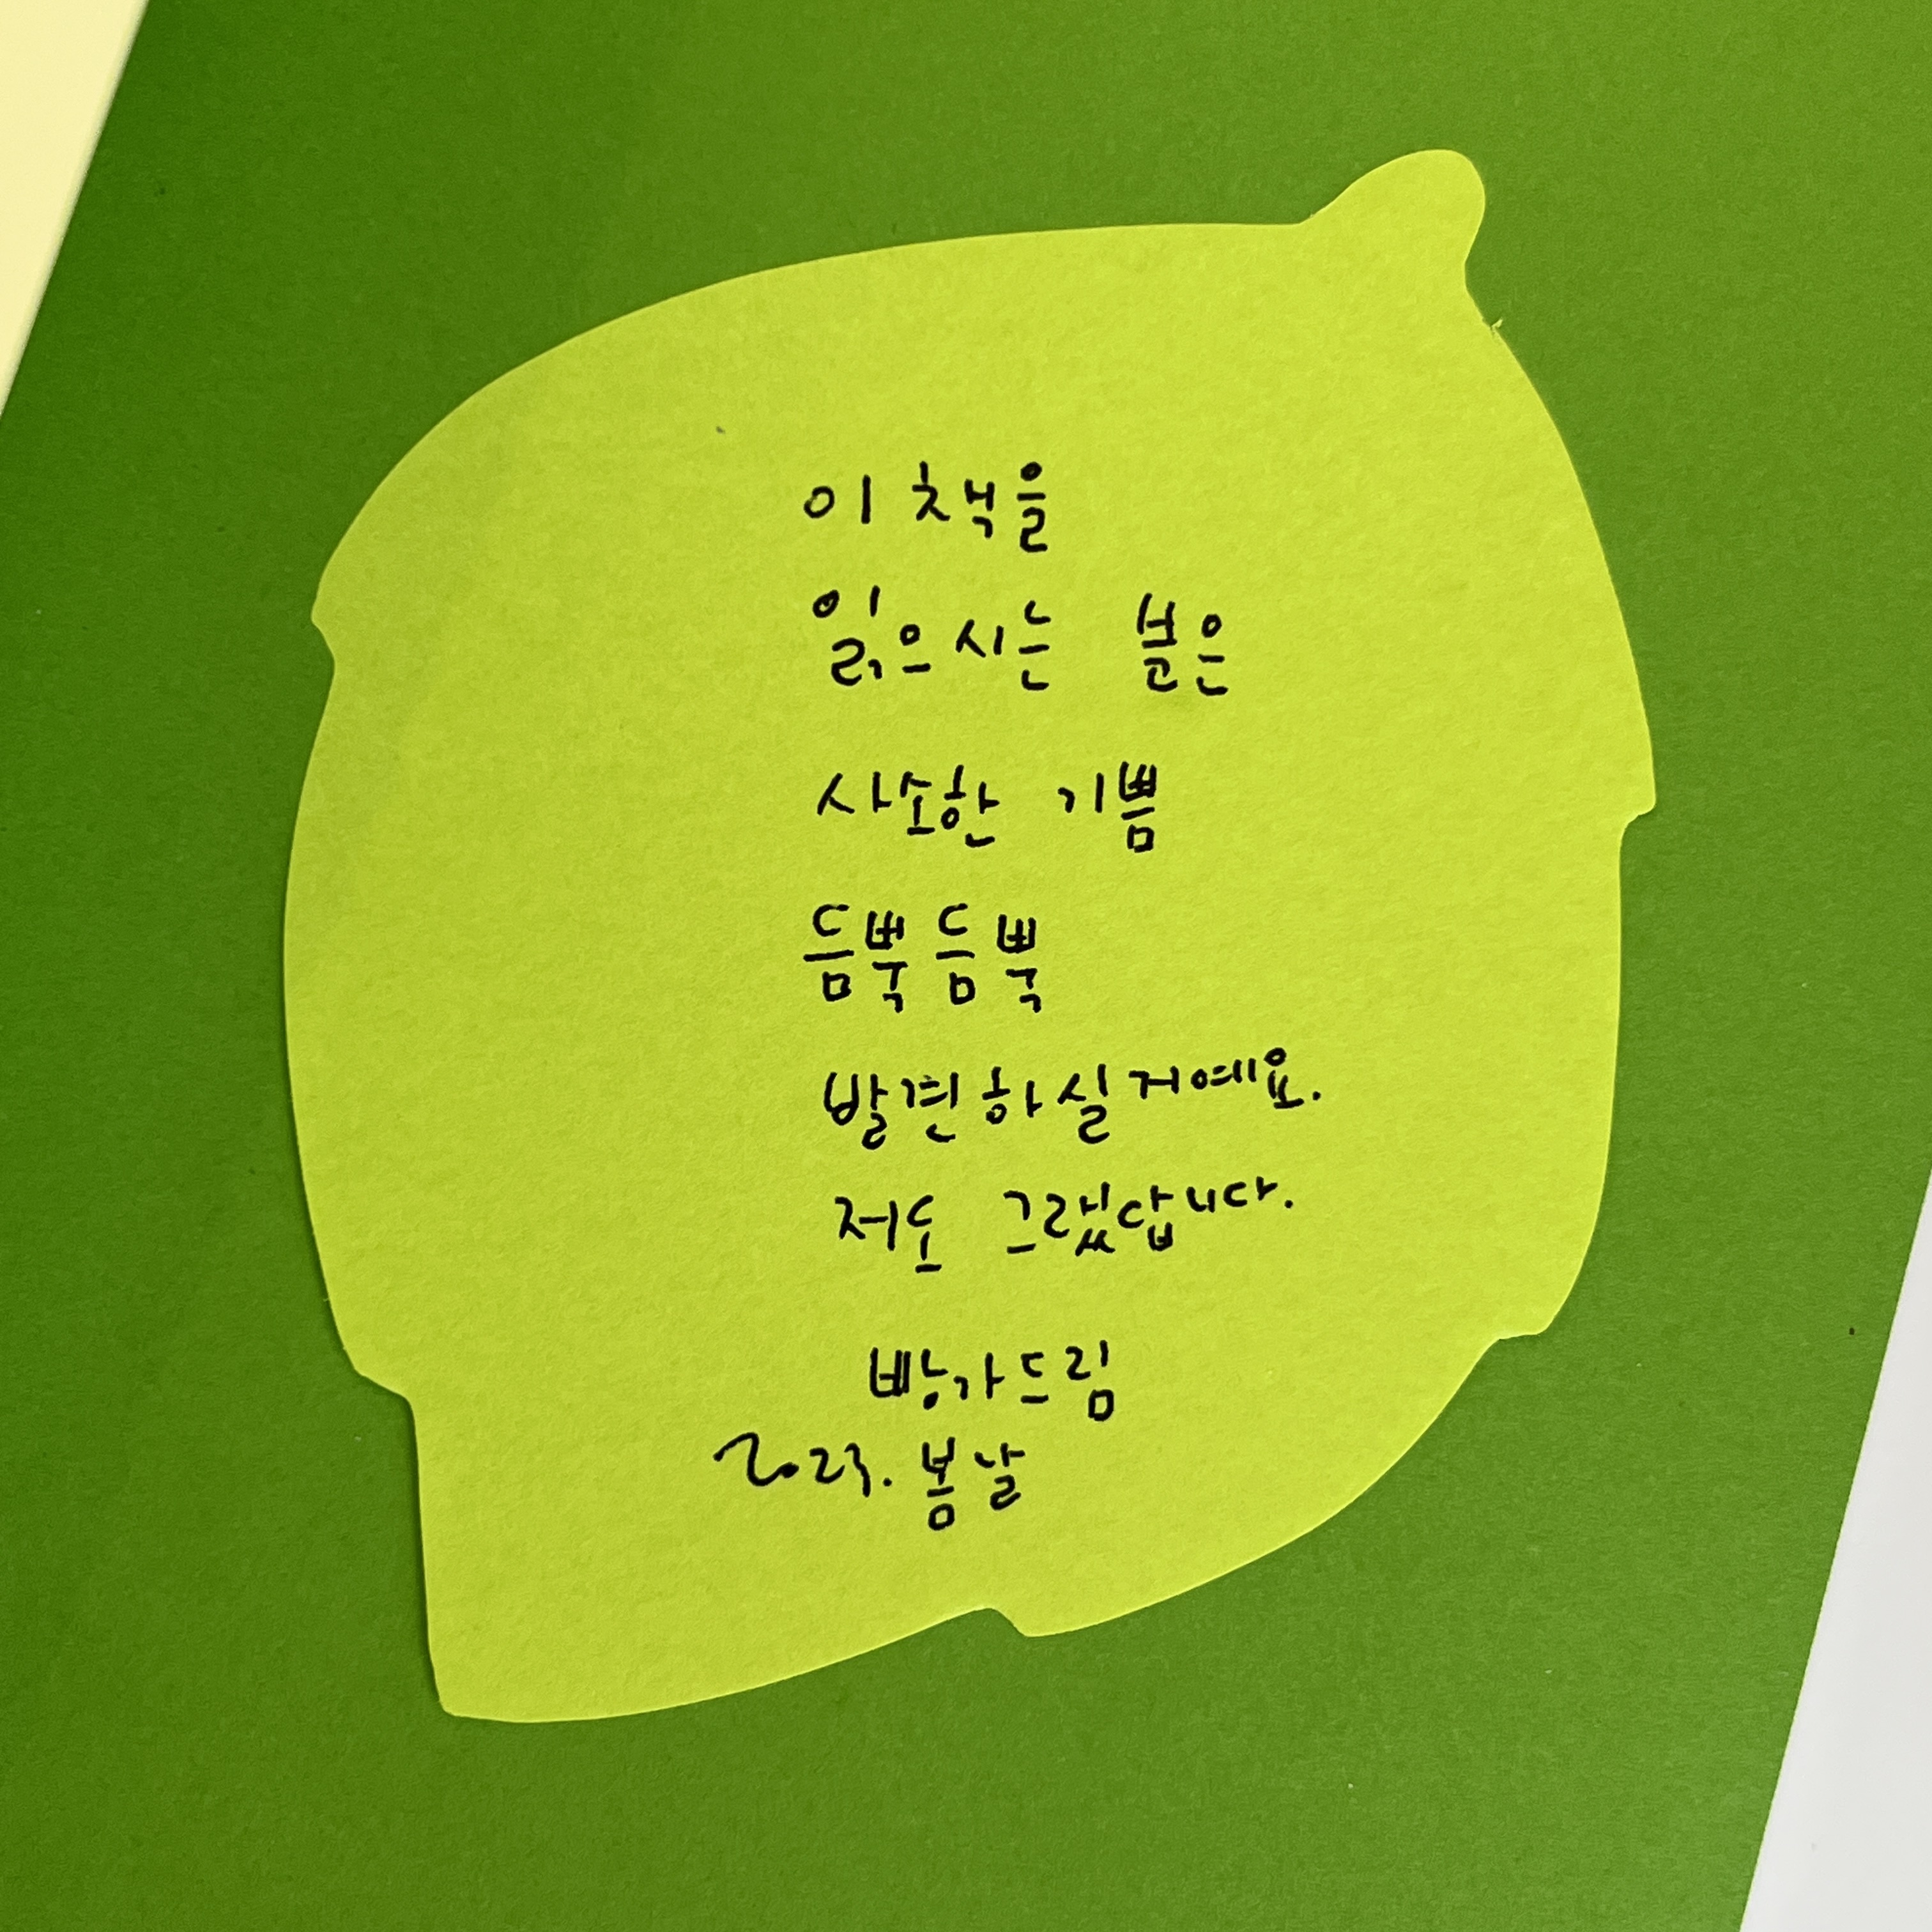 이 책을
읽으시는 분은
사소한 기쁨
듬뿍듬뿍
발견하실거예요.
저도 그랬답니다.
빵가드림
2023. 봄날